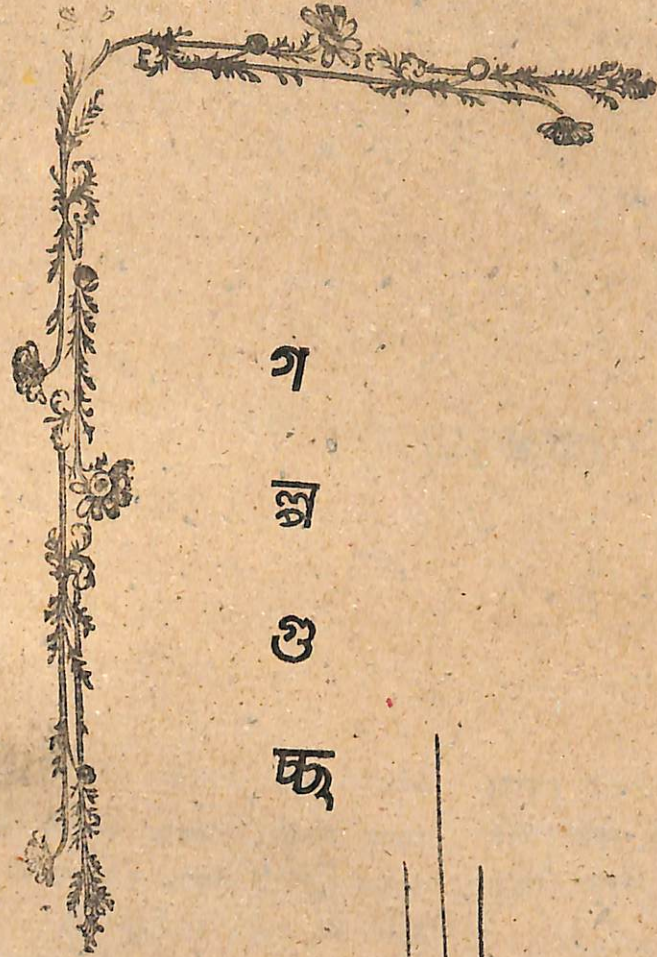 গ
ল্প
গু
চ্ছ